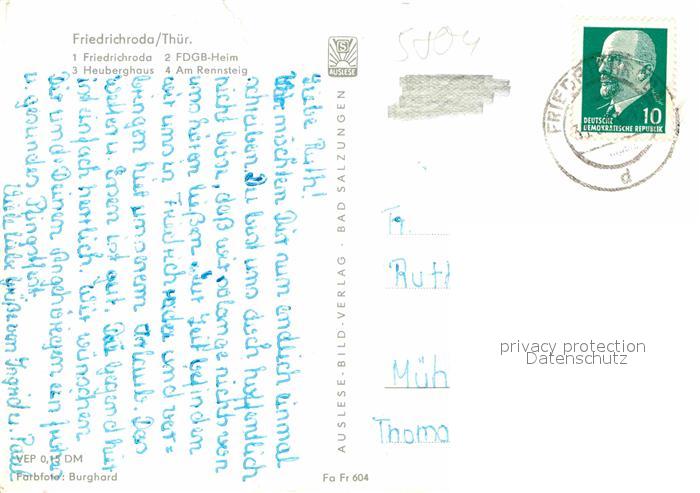 Friedrichroda/Thür.
1 Friedrichroda 2 FDGB-Heim
3 Heuberghaus 4 Am Rennsteig
AUSLESE
5804
DEUTSCHE
DEMOKRATISCHE REPUBLIK
10
FRIED
d
Liebe Ruth!
Wir möchten Dir nun endlich einmal
schreiben. Du bist uns doch hoffentlich
nicht böse, daß wir solange nichts von
uns hören ließen. Zur Zeit befinden
wir uns in Friedrichroda und ver=
bringen hier unseren Urlaub. Das
Wetter u. Essen ist gut. Die Gegend hier
ist einfach herrlich. Wir wünschen
Dir und Deinen Angehörigen ein frohes
u. gesundes Pfingstfest.
Viele liebe Grüße von Ingrid u. Paul
AUSLESE-BILD-VERLAG · BAD SALZUNGEN
Fr.
Ruth
Müh
Thoma
privacy protection
Datenschutz
VEP 0,15 DM
Farbfoto: Burghard
Fa Fr 604